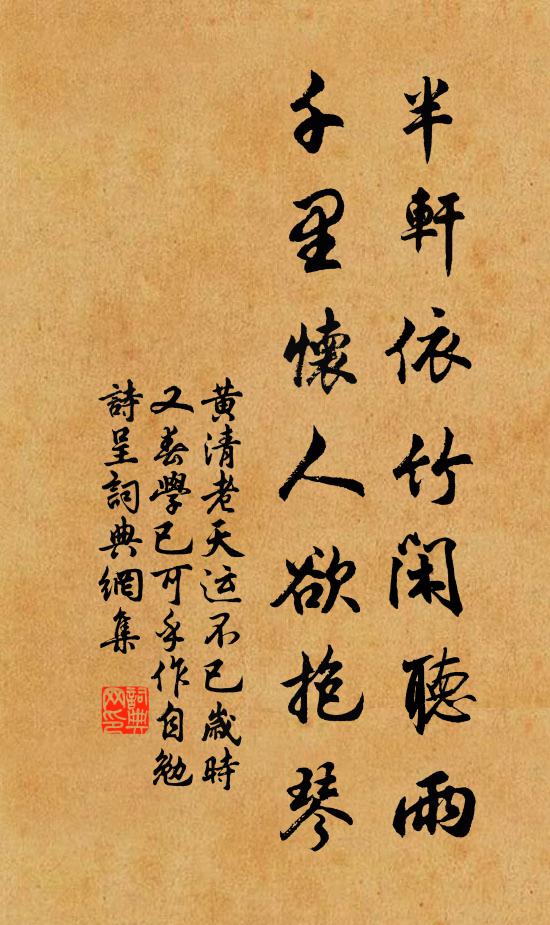 半軒依竹閑聽雨
千里懷人欲抱琴
黃清老天运不已歲時
又春學已可乎作自勉
詩呈詞典網集
詞典网印